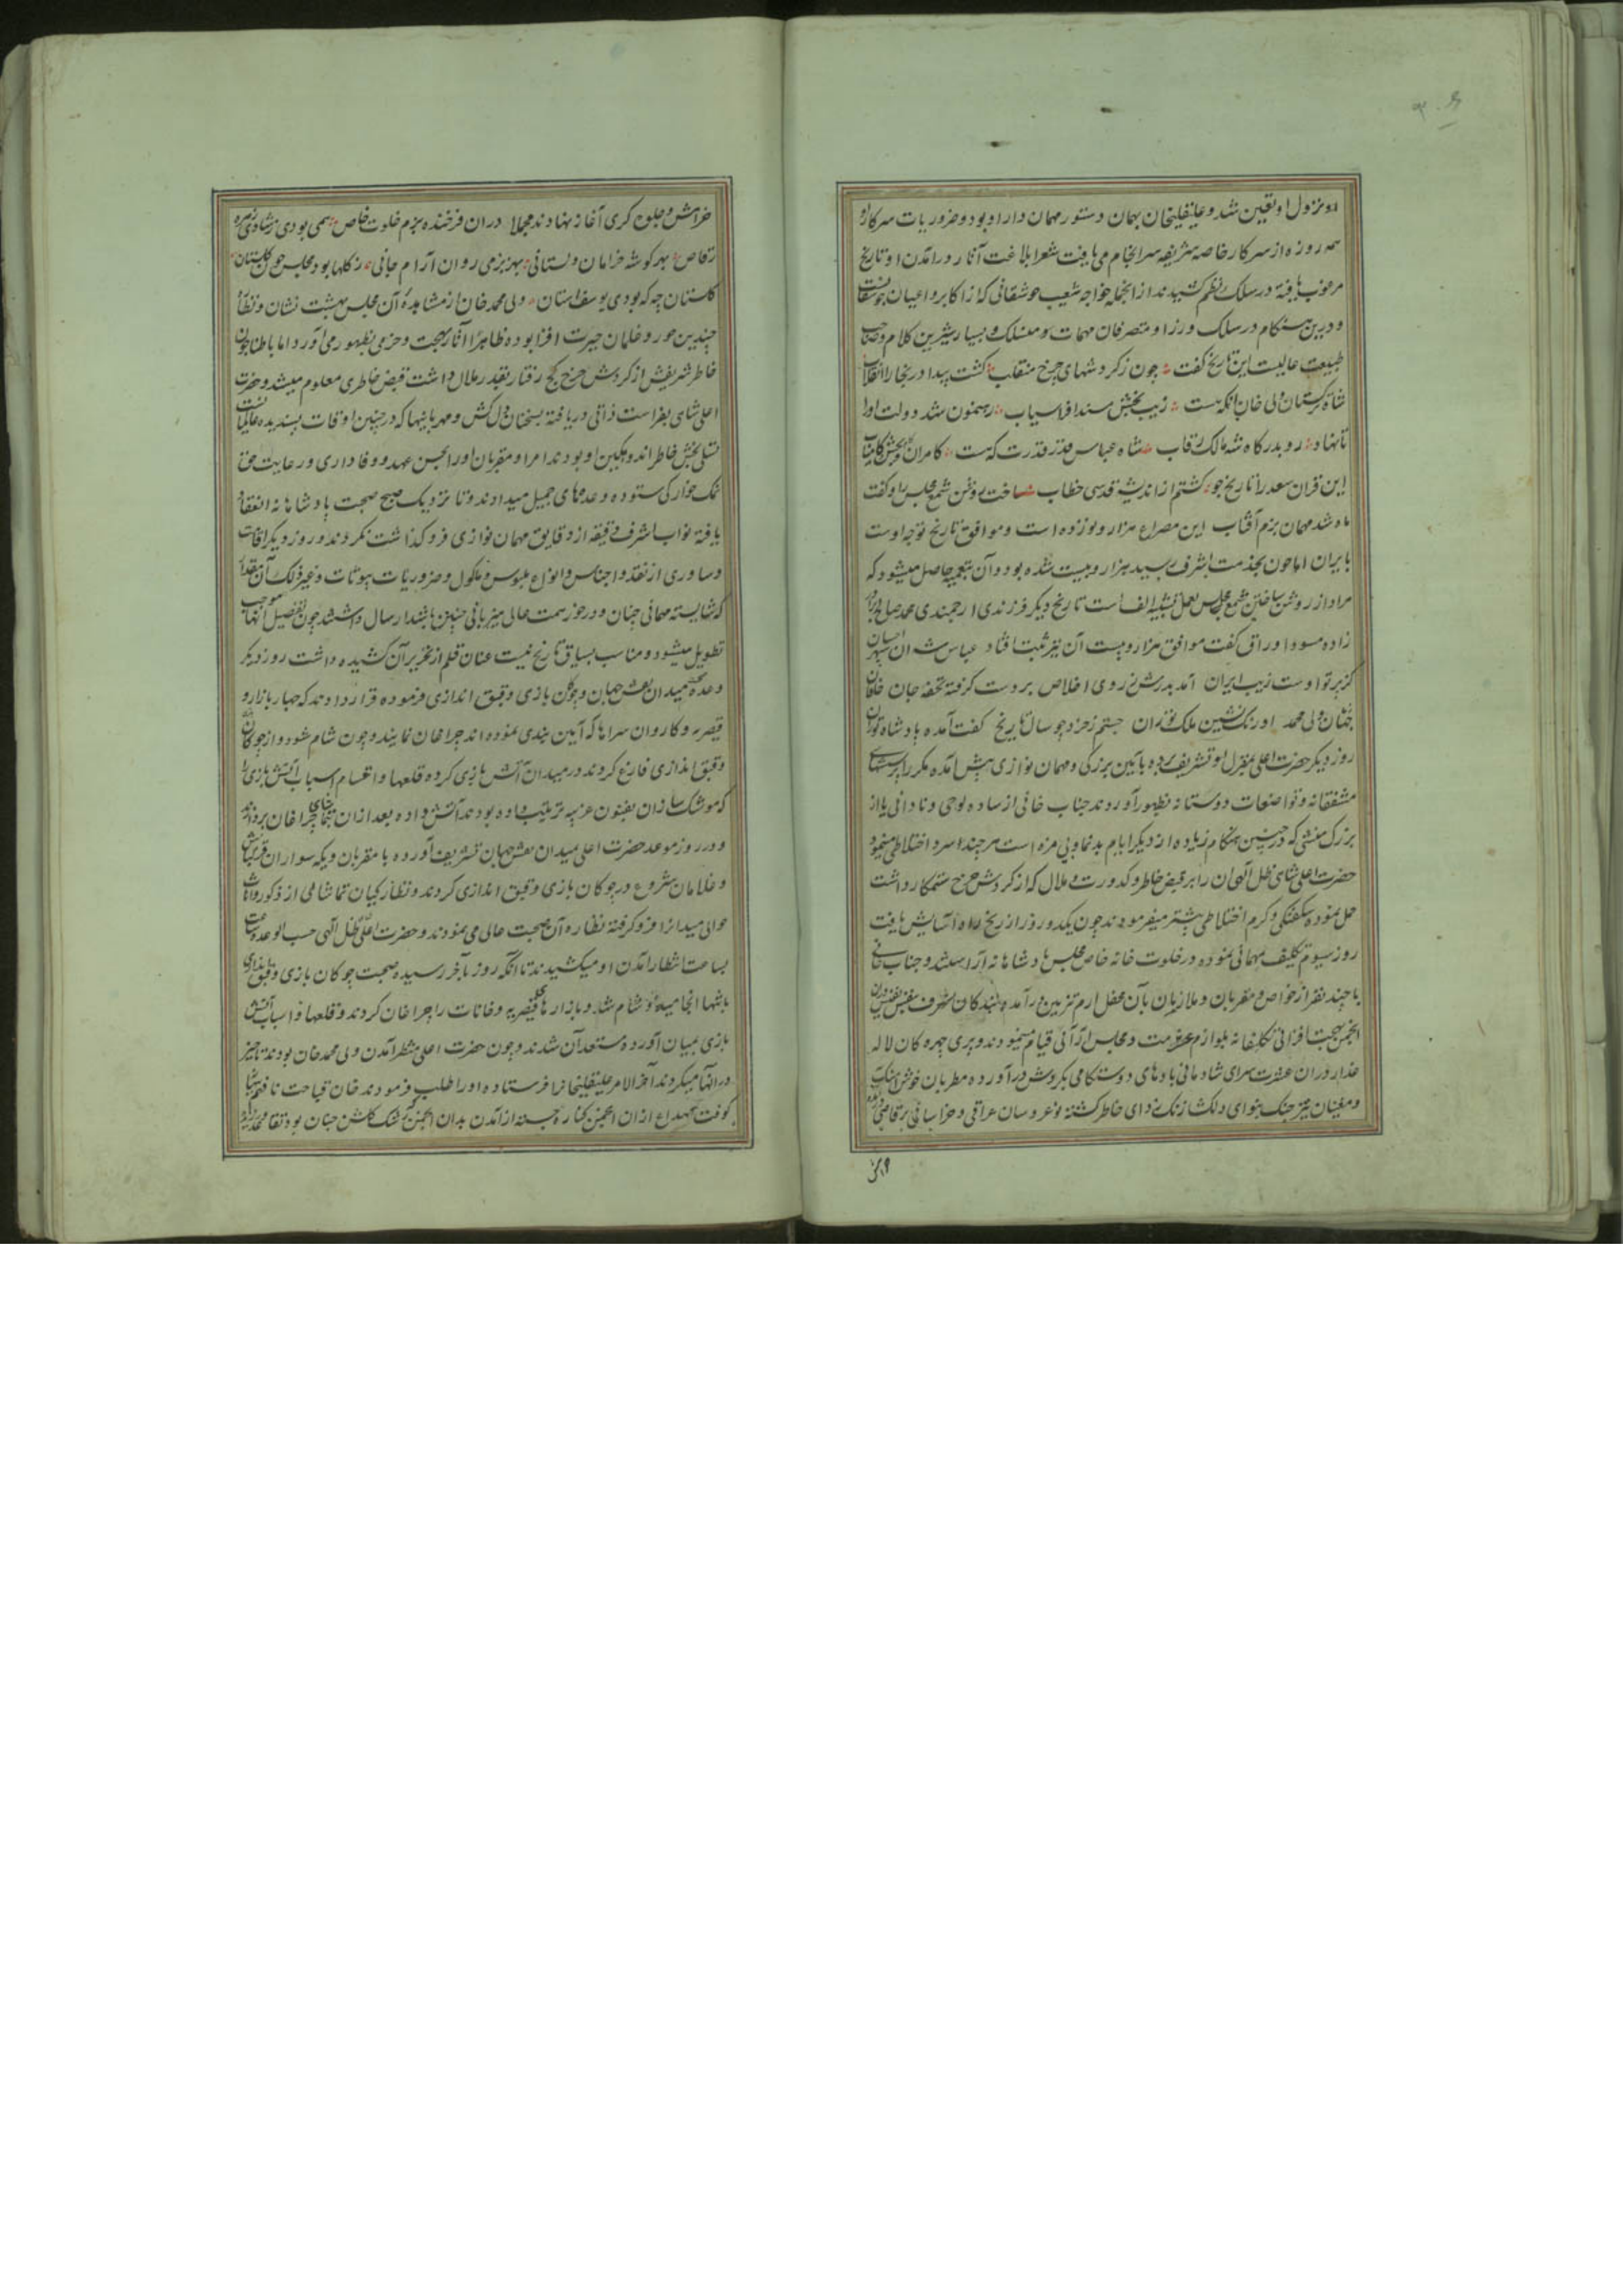 او نزول او تعیین شد و علیقلیخان بهمان دستور مهمان دار او بود و ضروریات سرکار او
همه روزه از سرکار خاصه شریفه سرانجام می یافت شعرا بلاغت آثار در آمدن او تاریخ
مرغوب یافته در سلک نظم کشیدند از انجمله خواجه شعیب جوشقانی که از اکابر و اعیان جوشقانست
و درین هنکام در سلک وزرا و متصرفان مهمات و منسلک و بسیار شیرین کلام و صاحب
طبیعت عالیست این تاریخ کفت چون ز کردشهای چرخ منقلب کشت پیدا در بخارا انقلاب
شاه ترکستان ولی خان آنکه هست زیب بخش مسند افراسیاب رهنمون شد دولت او را
تا نهاد رو بدرکاه شه مالک رقاب شاه عباس قدر قدرت که هست کامران و کام بخش کامیاب
این قران سعد را تاریخ جو کشتم از اندیشه قدسی خطاب ساخت روشن شمع مجلس را و کفت
ماه شد مهمان بزم آفتاب این مصراع هزار و نوزده است و موافق تاریخ توجه اوست
بایران اما چون بخدمت اشرف رسید هزار و بیست شده بود و آن بتعمیه حاصل میشود که
مراد از روشن ساختن شمع مجلس بعمل تشبیه الف است تاریخ دیکر فرزندی ارجمندی محمد صالح برادر
زاده مسود اوراق کفت موافق هزار و بیست آن نیز ثبت افتاد عباس شه آن سپهر احسان
کز پرتو اوست زیب ایران آمد بدرش ز روی اخلاص بر دست کرفته تحفه جان خاقان
جهان ولی محمد اورنک نشین ملک توران جستم ز خرد چو سال تاریخ کفت آمده پادشاه توران
روز دیکر حضرت اعلی بمنزل او تشریف برده بآیین بزرکی و مهمان نوازی پیش آمده مکررا پرسشهای
مشفقانه و تواضعات دوستانه بظهور آوردند جناب خانی از ساده لوحی و نادانی یا از
بزرک منشی که در چنین هنکام زیاده از دیکر ایام بدنما و بی مزه است هر چند سرد اختلاطی مینمود
حضرت اعلی شاهی ظل آلهی آن را بر قبض خاطر و کدورت و ملال که از کردش چرخ ستمکار داشت
حمل نموده شکفتکی و کرم اختلاطی بیشتر میفرمودند چون یکدو روز از رنج راه آسایش یافت
روز سیوم تکلیف مهمانی نموده در خلوت خانه خاص مجلس پادشاهانه آراسته شد و جناب خانی
با چند نفر از خواص و مقربان و ملازمان بآن محفل ارم تزیین در آمده بندکان اشرف بنفس نفیس در آن
انجمن بهجت افزا بی تکلفانه بلوازم عزت و مجلس آرائی قیام مینمودند و پری چهره کان لاله
عذار در آن عشرت سرای شادمانی باده های دوستکامی بکردش در آورده مطربان خوش آهنک
و مغنیان تیز چنک بنوای دلکش زنک زدای خاطر کشته نو عروسان عراقی و خراسانی برقاصی
خرامش و جلوه کری آغاز نهادند مجملا در ان فرخنده بزم خلوت خاص همی بودی ز شادی زهره
رقاص بهر کوشه خرامان دلستانی بهر بزمی روان آرام جانی ز کلها بود مجلس چون کلستان
کلستان چه که بودی یوسفستان ولی محمد خان از مشاهده آن مجلس بهشت نشان و نظاره
چندین حور و غلمان حیرت افزا بوده ظاهرا آثار بهجت و خرمی بظهور می آورد اما باطنا چون
خاطر شریفش از کردش چرخ کج رفتار بقدر ملال داشت قبض خاطری معلوم میشد و حضرت
اعلی شاهی بفراست ذاتی دریافته بسخنان دل کش و مهربانیها که در چنین اوقات پسندیده عالمیان است
تسلی بخش خاطر اندوهکین او بودند امرا و مقربان او را بحسن عهد و وفاداری و رعایت حق
نمک خوارکی ستوده وعدهای جمیل میدادند و تا نزدیک صبح صحبت پادشاهانه انعقاد
یافته نواب اشرف دقیقه از دقایق مهمان نوازی فروکذاشت نکردند و روز دیکر اقامات
و ساوری از نقد و اجناس و انواع ملبوس و ماکول و ضروریات بیوتات و غیر ذلک آن مقدار
که شایسته مهمانی چنان و در خور همت عالی میزبانی چنین باشد ارسال داشتند چون تفصیل آنها موجب
تطویل میشود و مناسب سیاق تاریخ نیست عنان قلم از تحریر آن کشیده داشت روز دیکر
وعده صحبت میدان نقش جهان و چوکان بازی و قبق اندازی فرموده قرار دادند که چهار بازار و
قیصریه و کاروان سراها که آیین بندی نموده اند چراغان نمایند و چون شام شود و از چوکان
و قبق اندازی فارغ کردند در میدان آتش بازی کرده قلعها و اقسام اسباب آتش بازی را
که موشک سازان بفنون غریبه ترتیب داده بودند آتش داده بعد از ان بتماشای چراغان پردازند
و در روز موعد حضرت اعلی بمیدان نقش جهان تشریف آورده با مقربان و یکه سواران قزلباش
و غلامان شروع در چوکان بازی و قبق اندازی کردند و نظارکیان تماشائی از ذکور و اناث
حوالی میدانرا فرو کرفته نظاره آن صحبت عالی می نمودند و حضرت اعلی ظل آلهی حسب الوعده ساعت
بساعت انتظار آمدن او میکشیدند تا آنکه روز بآخر رسیده صحبت چوکان بازی و قبق اندازی
بانتها انجامید و شام شد و بازارها و قیصریه و خانات را چراغان کردند و قلعها و اسباب آتش
بازی بمیان آورده مستعد آن شدند و چون حضرت اعلی منتظر آمدن ولی محمد خان بودند تاخیر
در آنها میکردند آخر الامر علیقلیخانرا فرستاده او را طلب فرمودند خان قباحت نافهم
کوفت صداع از ان انجمن کناره جسته از آمدن بدان انجمن که رشک کلشن جنان بود تقاعد